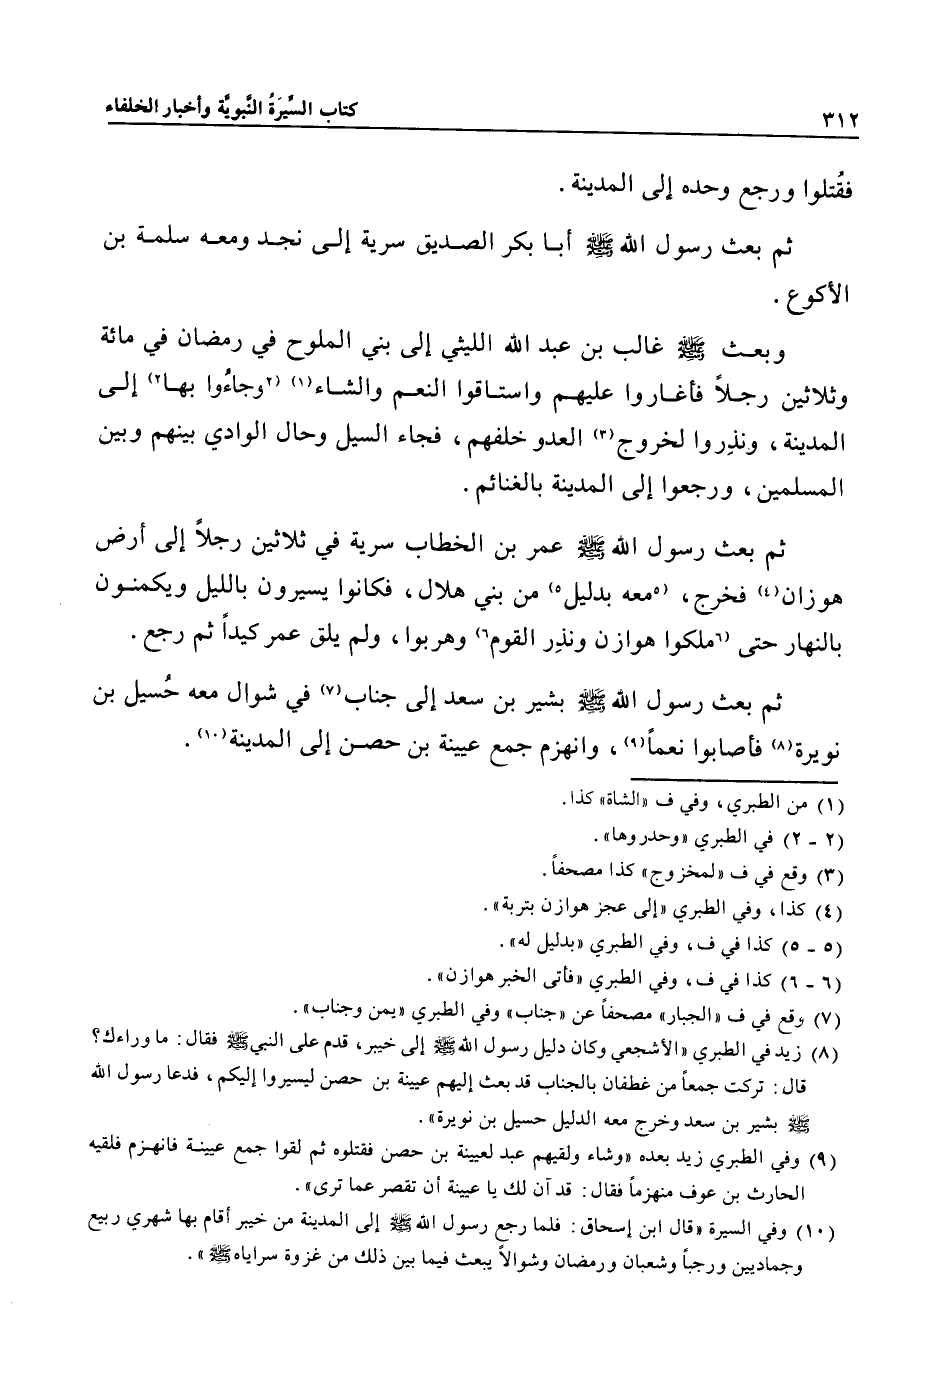 ٣١٢ كتاب السِّيرَةُ النَّبويَّة وأخبار الخلفاء
فقُتلوا ورجع وحده إلى المدينة .
ثم بعث رسول الله ﷺ أبـا بكر الصـديق سرية إلـى نجـد ومعـه سلمـة بن
الأكوع .
وبعـث ﷺ غالب بن عبد الله الليثي إلى بني الملوح في رمضان في مائة
وثلاثين رجـلاً فأغـاروا عليهـم واستـاقوا النعـم والشـاء(١) (٢وجاءُوا بهـا٢) إلـى
المدينة ، ونذِروا لخروج(٣) العدو خلفهم ، فجاء السيل وحال الوادي بينهم وبين
المسلمين ، ورجعوا إلى المدينة بالغنائم .
ثم بعث رسول الله ﷺ عمر بن الخطاب سرية في ثلاثين رجلاً إلى أرض
هوزان(٤) فخرج ، (٥معه بدليل٥) من بني هلال ، فكانوا يسيرون بالليل ويكمنون
بالنهار حتى (٦ملكوا هوازن ونذِر القوم٦) وهربوا ، ولم يلق عمر كيداً ثم رجع .
ثم بعث رسول الله ﷺ بشير بن سعد إلى جناب(٧) في شوال معه حُسيل بن
نويرة(٨) فأصابوا نعماً(٩) ، وانهزم جمع عيينة بن حصـن إلى المدينة(١٠) .
(١) من الطبري ، وفي ف «الشاة» كذا .
(٢ - ٢) في الطبري «وحدروها» .
(٣) وقع في ف «لمخزوج» كذا مصحفاً .
(٤) كذا ، وفي الطبري «إلى عجز هوازن بتربة» .
(٥ - ٥) كذا في ف ، وفي الطبري «بدليل له» .
(٦ - ٦) كذا في ف ، وفي الطبري «فأتى الخبر هوازن» .
(٧) وقع في ف «الجبار» مصحفاً عن «جناب» وفي الطبري «يمن وجناب» .
(٨) زيد في الطبري «الأشجعي وكان دليل رسول الله ﷺ إلى خيبر ، قدم على النبي ﷺ فقال : ما وراءك؟
قال : تركت جمعاً من غطفان بالجناب قد بعث إليهم عيينة بن حصن ليسيروا إليكم ، فدعا رسول الله
ﷺ بشير بن سعد وخرج معه الدليل حسيل بن نويرة» .
(٩) وفي الطبري زيد بعده «وشاء ولقيهم عبد لعيينة بن حصن فقتلوه ثم لقوا جمع عيينـة فانهـزم فلقيه
الحارث بن عوف منهزماً فقال : قد آن لك يا عيينة أن تقصر عما ترى» .
(١٠) وفي السيرة «قال ابن إسحاق : فلما رجع رسول الله ﷺ إلى المدينة من خيبر أقام بها شهري ربيع
وجماديين ورجباً وشعبان ورمضان وشوالاً يبعث فيما بين ذلك من غزوة سراياه ﷺ» .